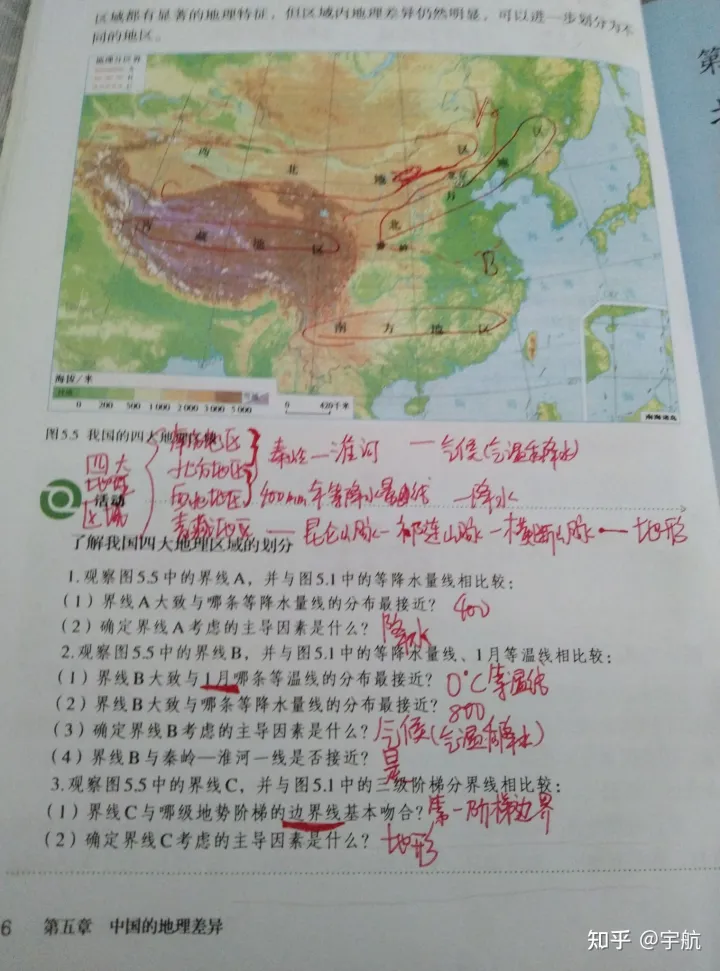 区域都有显著的地理特征，但区域内地理差异仍然明显，可以进一步划分为不
同的地区。
第
地理分区界
A
B
C
西 北 地 区
北 方 地 区
青 藏 地 区
南 方 地 区
A
C
B
海拔/米
0 200 500 1 000 2 000 3 000 5 000
0 420千米
南海诸岛
图5.5 我国的四大地理区域
四大
地理
区域
南方地区
北方地区
秦岭—淮河 —气候(气温和降水)
西北地区
400mm年等降水量线 —降水
青藏地区 — 昆仑山脉—祁连山脉—横断山脉 — 地形
活动
了解我国四大地理区域的划分
1.观察图5.5中的界线A，并与图5.1中的等降水量线相比较：
(1) 界线A大致与哪条等降水量线的分布最接近？ 400
(2) 确定界线A考虑的主导因素是什么？ 降水
2.观察图5.5中的界线B，并与图5.1中的等降水量线、1月等温线相比较：
(1) 界线B大致与1月哪条等温线的分布最接近？ 0℃等温线
(2) 界线B大致与哪条等降水量线的分布最接近？ 800
(3) 确定界线B考虑的主导因素是什么？ 气候(气温和降水)
(4) 界线B与秦岭—淮河一线是否接近？ 是
3.观察图5.5中的界线C，并与图5.1中的三级阶梯分界线相比较：
(1) 界线C与哪级地势阶梯的边界线基本吻合？ 第一阶梯边界
(2) 确定界线C考虑的主导因素是什么？ 地形
6 第五章 中国的地理差异
知乎 @宇航